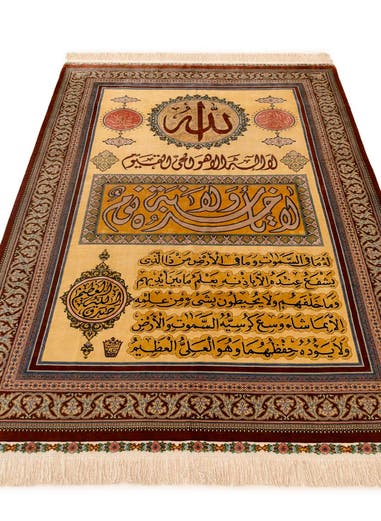 الله
لا اله الا هو الحی القیوم
لا تأخذه سنة ولا نوم
له ما فی السموات وما فی الأرض من ذا الذی
یشفع عنده الا باذنه یعلم ما بین أیدیهم
وما خلفهم ولا یحیطون بشیء من علمه
الا بما شاء وسع کرسیه السموت والأرض
ولا یؤده حفظهما وهو العلی العظیم